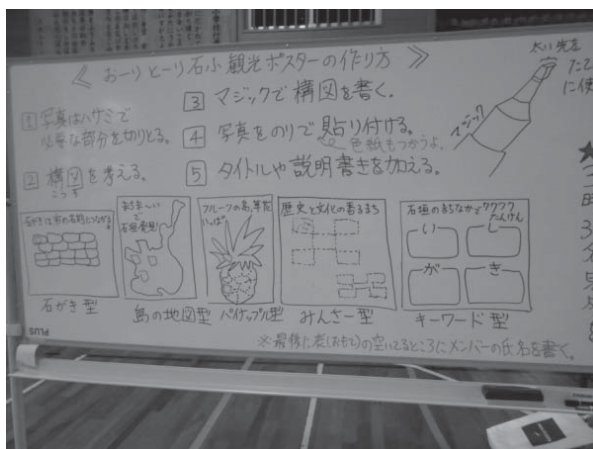 ≪おーりとーり石小観光ポスターの作り方≫
1 写真はハサミで
必要な部分を切りとる。
2 構図を考える。
こうず
3 マジックで構図を書く。
4 写真をのりで貼り付ける。
色紙もつかうよ。
5 タイトルや説明書きを加える。
マジック
石がき型
島の地図型
フルーツの島、石垣
パイナップル型
歴史と文化の香るまち
みんさー型
石垣のまちなかでワクワク
たんけん
い
し
が
き
キーワード型
※最後に表(おもて)の空いてるところにメンバーの氏名を書く。
PLUS